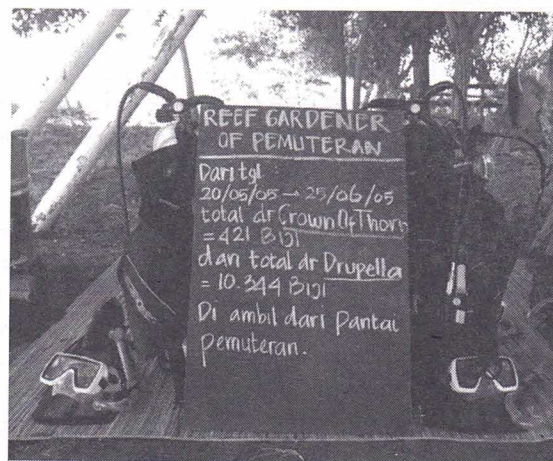 REEF GARDENER
OF PEMUTERAN
Dari tgl :
20/05/05 → 25/06/05
total dr Crown Of Thorn
= 421 Biji
dan total dr Drupella
= 10.344 Biji
Di ambil dari Pantai
pemuteran.